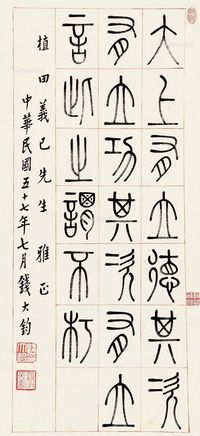 大上有立德其次
有立功其次有立
言此之謂不朽
植田義己先生雅正
中華民國五十七年七月錢大鈞